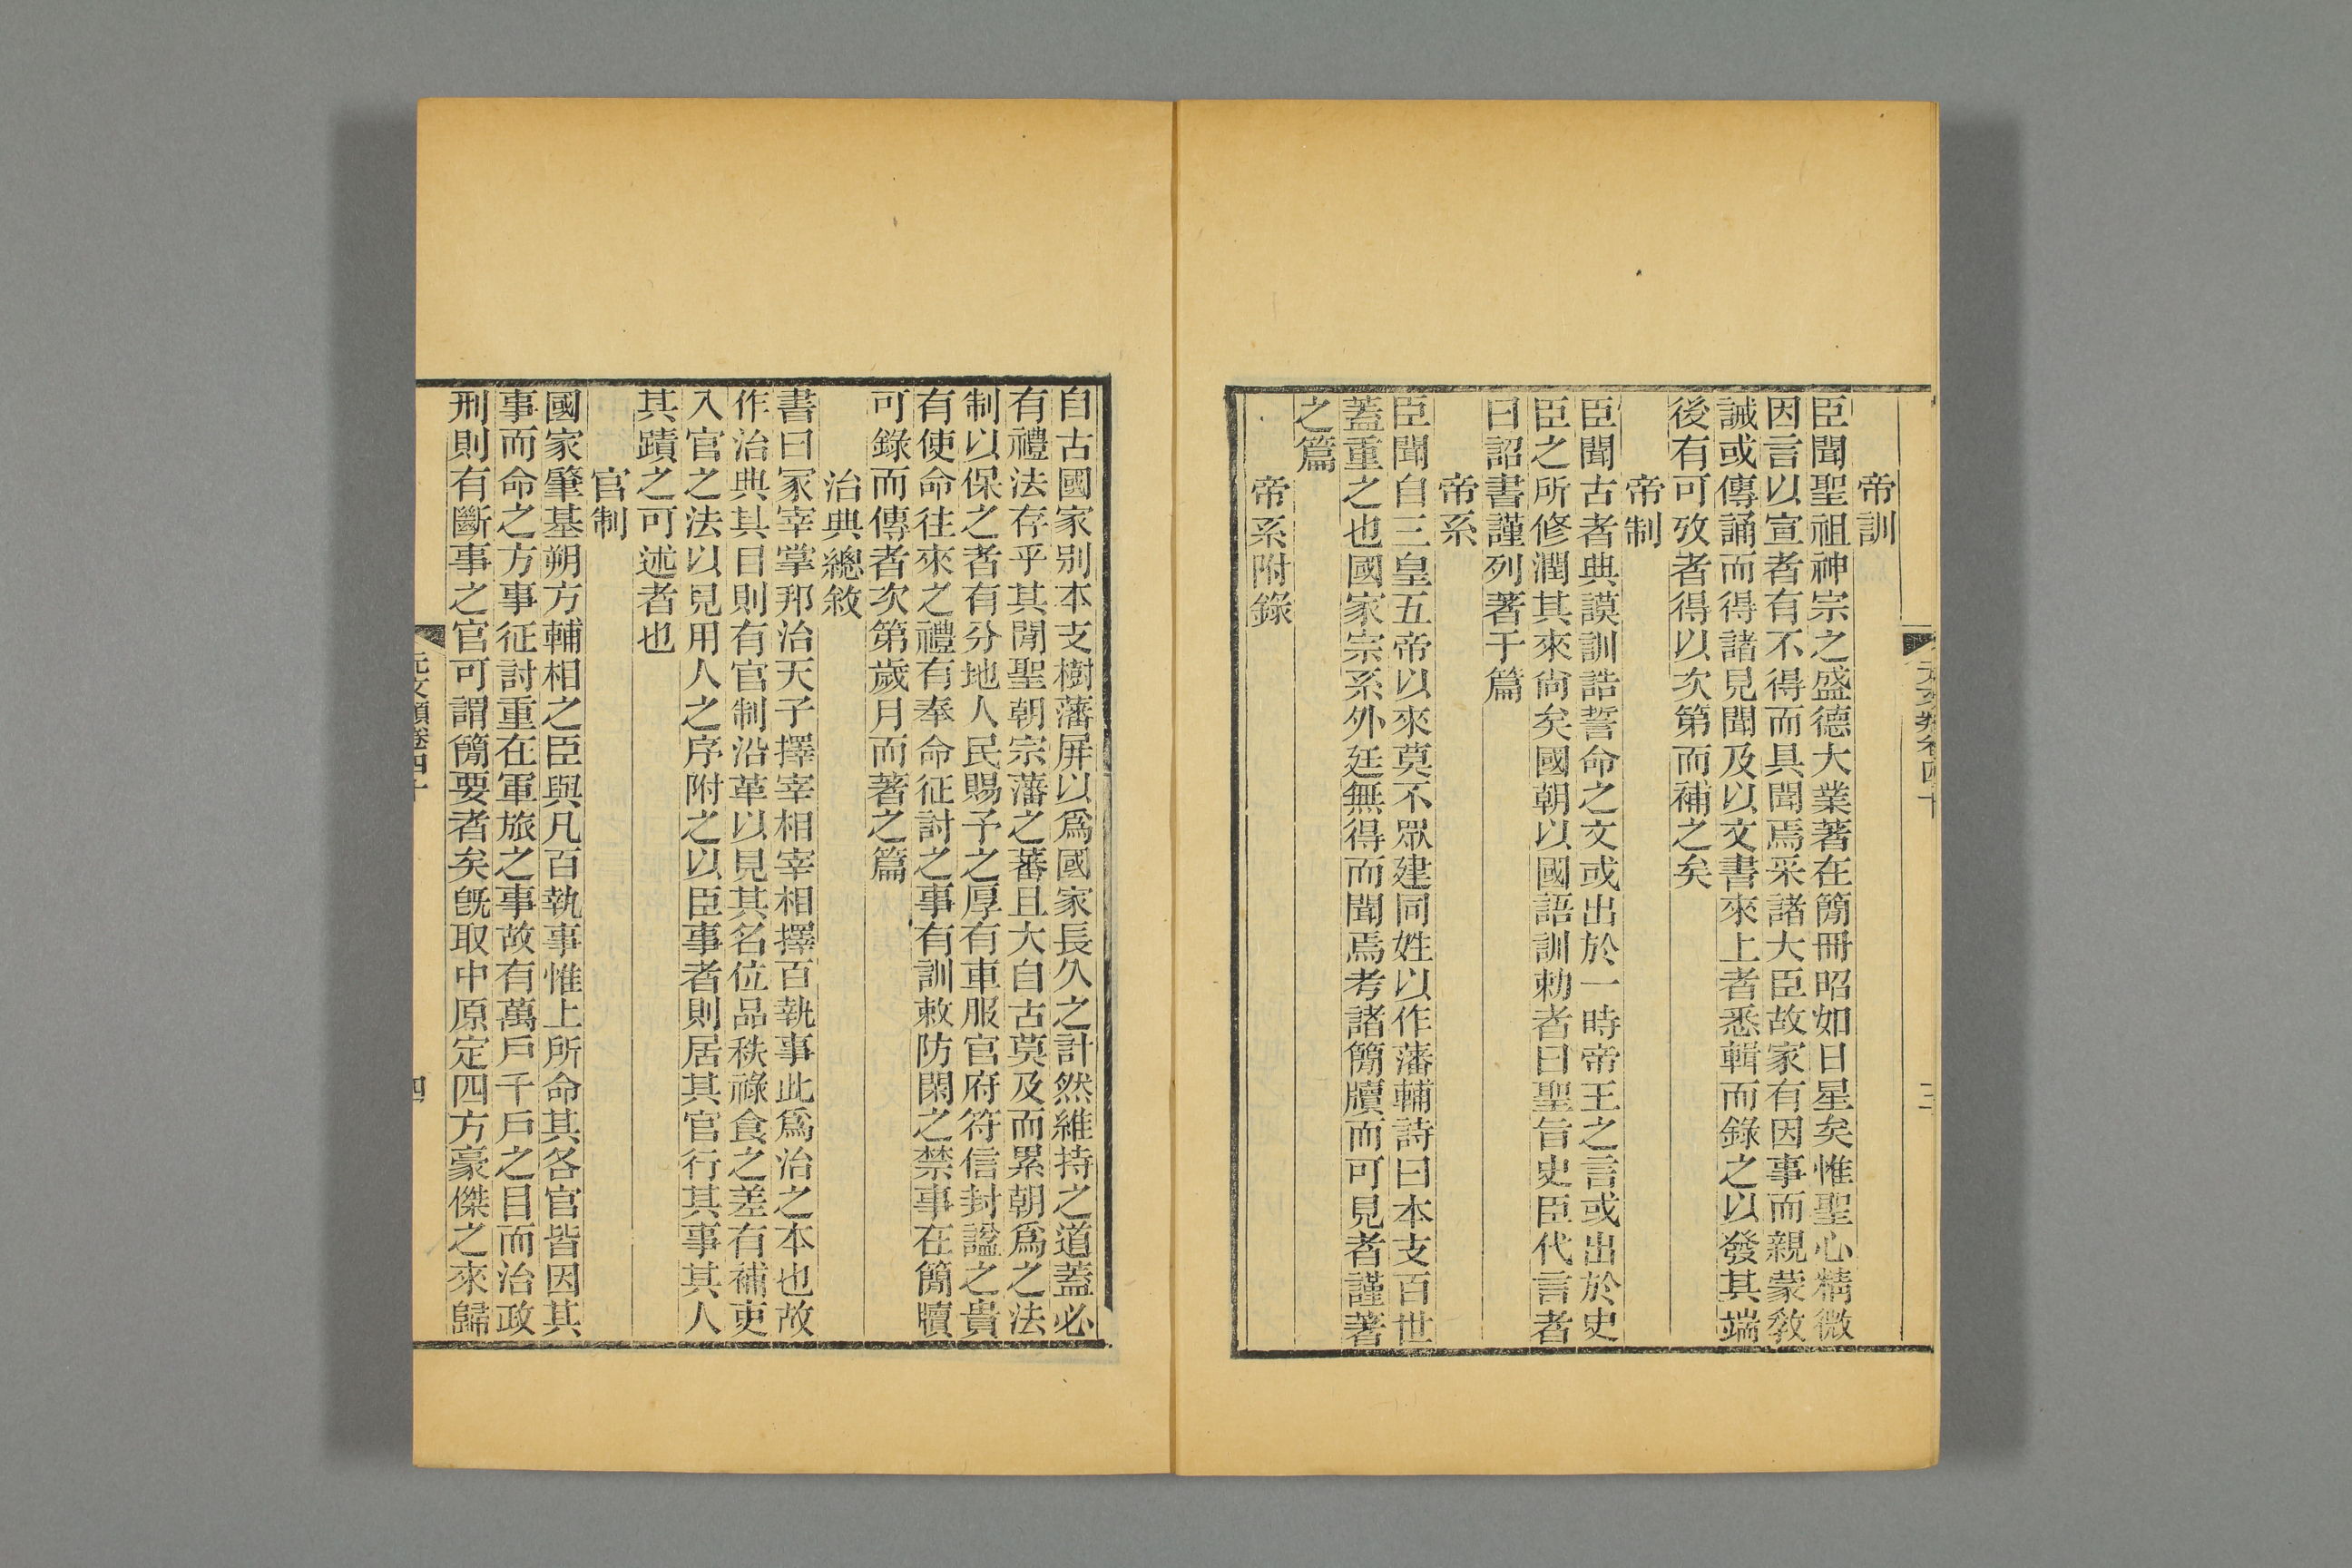 帝訓
臣聞聖祖神宗之盛德大業著在簡冊昭如日星矣惟聖心精微
因言以宣者有不得而具聞焉采諸大臣故家有因事而親蒙敎
誡或傳誦而得諸見聞及以文書來上者悉輯而錄之以發其端
後有可攷者得以次第而補之矣
帝制
臣聞古者典謨訓誥誓命之文或出於一時帝王之言或出於史
臣之所修潤其來尙矣國朝以國語訓勅者曰聖旨史臣代言者
曰詔書謹列著于篇
帝系
臣聞自三皇五帝以來莫不眾建同姓以作藩輔詩曰本支百世
蓋重之也國家宗系外廷無得而聞焉考諸簡牘而可見者謹著
之篇
帝系附錄
自古國家别本支樹藩屏以爲國家長久之計然維持之道蓋必
有禮法存乎其閒聖朝宗藩之蕃且大自古莫及而累朝爲之法
制以保之者有分地人民賜予之厚有車服官府符信封謚之貴
有使命往來之禮有奉命征討之事有訓敕防閑之禁事在簡牘
可錄而傳者次第歲月而著之篇
治典總敘
書曰冢宰掌邦治天子擇宰相宰相擇百執事此爲治之本也故
作治典其目則有官制沿革以見其名位品秩祿食之差有補吏
入官之法以見用人之序附之以臣事者則居其官行其事其人
其蹟之可述者也
官制
國家肇基朔方輔相之臣與凡百執事惟上所命其各官皆因其
事而命之方事征討重在軍旅之事故有萬戶千戶之目而治政
刑則有斷事之官可謂簡要者矣旣取中原定四方豪傑之來歸
元文類卷四十
四